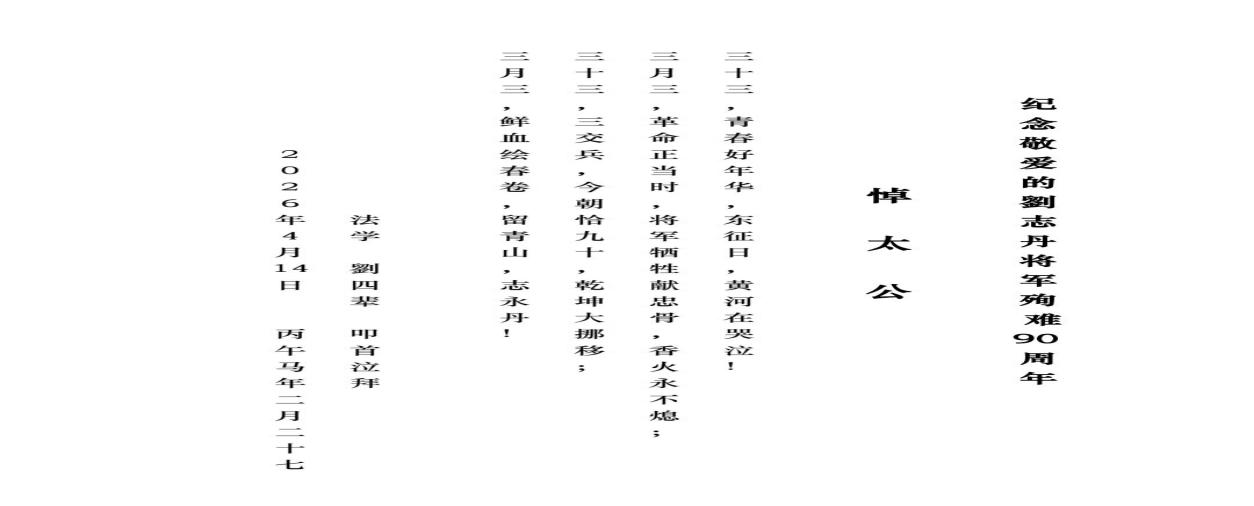 纪念敬爱的劉志丹将军殉难90周年
悼太公
三十三，青春好年华，东征日，黄河在哭泣！
三月三，革命正当时，将军牺牲献忠骨，香火永不熄；
三十三，三交兵，今朝恰九十，乾坤大挪移；
三月三，鲜血绘春卷，留青山，志永丹！
法学 劉四辈 叩首泣拜
2026年4月14日 丙午马年二月二十七